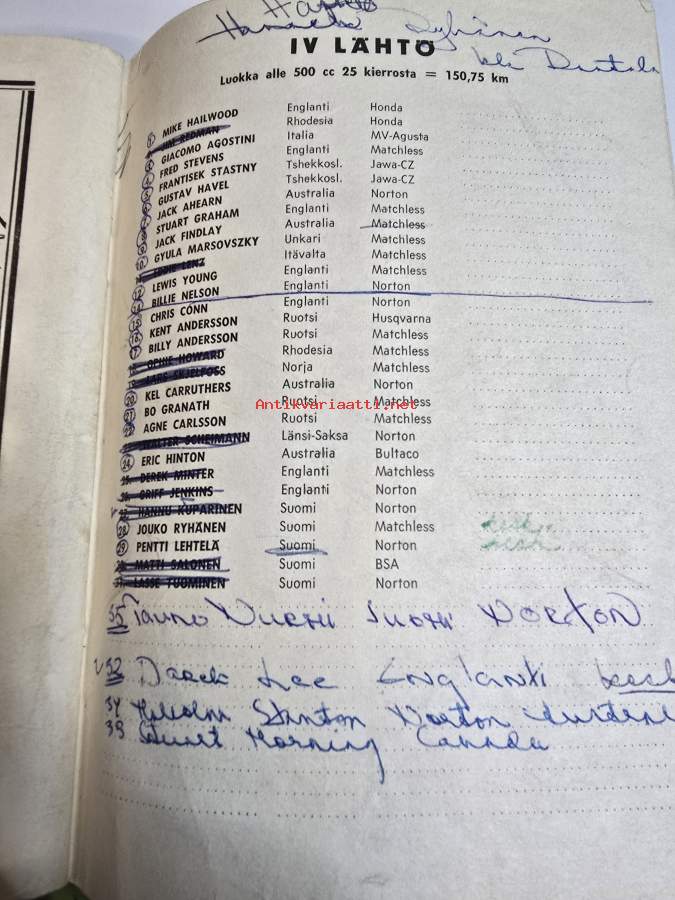 Ryhänen
IV LÄHTÖ
Luokka alle 500 cc 25 kierrosta = 150,75 km
MIKE HAILWOOD Englanti Honda
JIM REDMAN Rhodesia Honda
GIACOMO AGOSTINI Italia MV-Agusta
FRED STEVENS Englanti Matchless
FRANTISEK STASTNY Tshekkosl. Jawa-CZ
GUSTAV HAVEL Tshekkosl. Jawa-CZ
JACK AHEARN Australia Norton
STUART GRAHAM Englanti Matchless
JACK FINDLAY Australia Matchless
GYULA MARSOVSZKY Unkari Matchless
EDDIE LENZ Itävalta Matchless
LEWIS YOUNG Englanti Matchless
BILLIE NELSON Englanti Norton
CHRIS CONN Englanti Norton
KENT ANDERSSON Ruotsi Husqvarna
BILLY ANDERSSON Ruotsi Matchless
OPHIE HOWARD Rhodesia Matchless
LARS SKJELFOSS Norja Matchless
20 KEL CARRUTHERS Australia Norton
21 BO GRANATH Ruotsi Matchless
AGNE CARLSSON Ruotsi Matchless
WALTER SCHEIMANN Länsi-Saksa Norton
24 ERIC HINTON Australia Bultaco
25. DEREK MINTER Englanti Matchless
GRIFF JENKINS Englanti Norton
HANNU KUPARINEN Suomi Norton
28 JOUKO RYHÄNEN Suomi Matchless kesk.
29 PENTTI LEHTELÄ Suomi Norton kesk.
MATTI SALONEN Suomi BSA
LASSE TUOMINEN Suomi Norton
35 Tauno Nurmi Suomi Norton
32 Dareck Lee Englanti kesk
34 Malcolm Stanton Norton
Morning Canada
Antikvariaatti.net